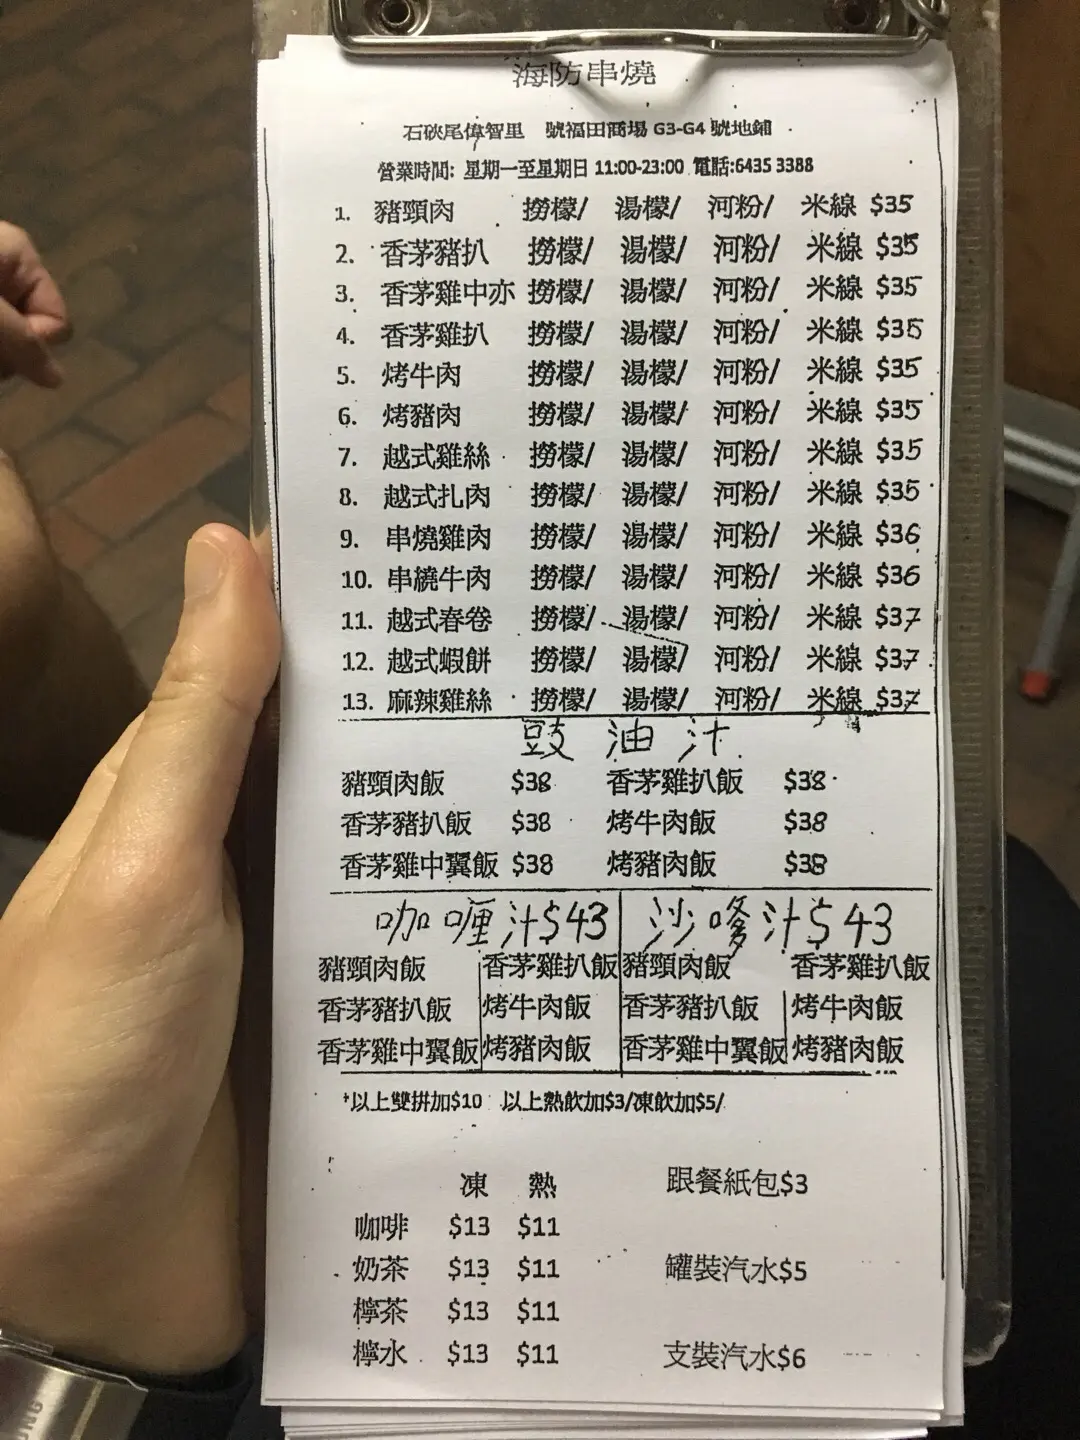 海防串燒
石硤尾偉智里 號福田商場 G3-G4 號地鋪
營業時間: 星期一至星期日 11:00-23:00 電話:6435 3388
1. 豬頸肉 撈檬/ 湯檬/ 河粉/ 米線 $35
2. 香茅豬扒 撈檬/ 湯檬/ 河粉/ 米線 $35
3. 香茅雞中亦 撈檬/ 湯檬/ 河粉/ 米線 $35
4. 香茅雞扒 撈檬/ 湯檬/ 河粉/ 米線 $35
5. 烤牛肉 撈檬/ 湯檬/ 河粉/ 米線 $35
6. 烤豬肉 撈檬/ 湯檬/ 河粉/ 米線 $35
7. 越式雞絲 撈檬/ 湯檬/ 河粉/ 米線 $35
8. 越式扎肉 撈檬/ 湯檬/ 河粉/ 米線 $35
9. 串燒雞肉 撈檬/ 湯檬/ 河粉/ 米線 $36
10. 串繞牛肉 撈檬/ 湯檬/ 河粉/ 米線 $36
11. 越式春卷 撈檬/ 湯檬/ 河粉/ 米線 $37
12. 越式蝦餅 撈檬/ 湯檬/ 河粉/ 米線 $37
13. 麻辣雞絲 撈檬/ 湯檬/ 河粉/ 米線 $37
豉油汁
豬頸肉飯 $38 香茅雞扒飯 $38
香茅豬扒飯 $38 烤牛肉飯 $38
香茅雞中翼飯 $38 烤豬肉飯 $38
咖喱汁$43 沙嗲汁$43
豬頸肉飯 香茅雞扒飯 豬頸肉飯 香茅雞扒飯
香茅豬扒飯 烤牛肉飯 香茅豬扒飯 烤牛肉飯
香茅雞中翼飯 烤豬肉飯 香茅雞中翼飯 烤豬肉飯
*以上雙拼加$10 以上熱飲加$3/凍飲加$5/
凍 熱 跟餐紙包$3
咖啡 $13 $11
奶茶 $13 $11 罐裝汽水$5
檸茶 $13 $11
檸水 $13 $11 支裝汽水$6